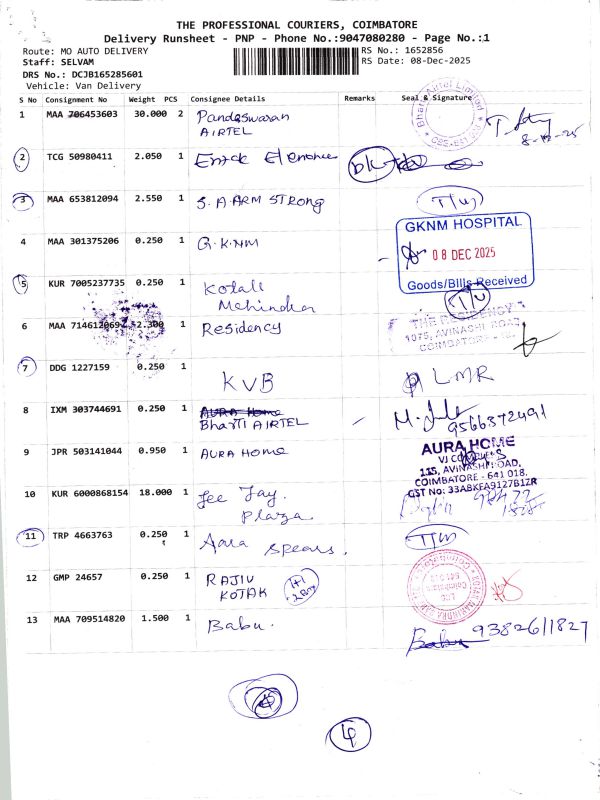 THE PROFESSIONAL COURIERS, COIMBATORE
Delivery Runsheet - PNP - Phone No.:9047080280 - Page No.:1
Route: MO AUTO DELIVERY
RS No.: 1652856
Staff: SELVAM
RS Date: 08-Dec-2025
DRS No.: DCJB165285601
Vehicle: Van Delivery
S No Consignment No Weight PCS Consignee Details Remarks Seal & Signature
1 MAA 706453603 30.000 2 Pandeswaran
AIRTEL
8-12-25
2 TCG 50980411 2.050 1
3 MAA 653812094 2.550 1 S.A.ARM STRONG
4 MAA 301375206 0.250 1 G.K.NM
GKNM HOSPITAL
08 DEC 2025
Goods/Bills Received
5 KUR 7005237735 0.250 1 Kotak
Mehindra
6 MAA 714612069 2.300 1 Residency
THE RESIDENCY
1075, AVINASHI ROAD,
COIMBATORE
7 DDG 1227159 0.250 1 KVB
LMR
8 IXM 303744691 0.250 1 AURA Home
Bharti AIRTEL
9566372491
9 JPR 503141044 0.950 1 AURA HOME
AURA HOME
115, AVINASHI ROAD,
COIMBATORE - 641 018.
GST No: 33ABKFA9127B1ZR
10 KUR 6000868154 18.000 1 Jee Jay.
Plaza
11 TRP 4663763 0.250 1 Aara Spears.
12 GMP 24657 0.250 1 RAJIV
KOTAK
13 MAA 709514820 1.500 1 Babu.
Babu 9382611827